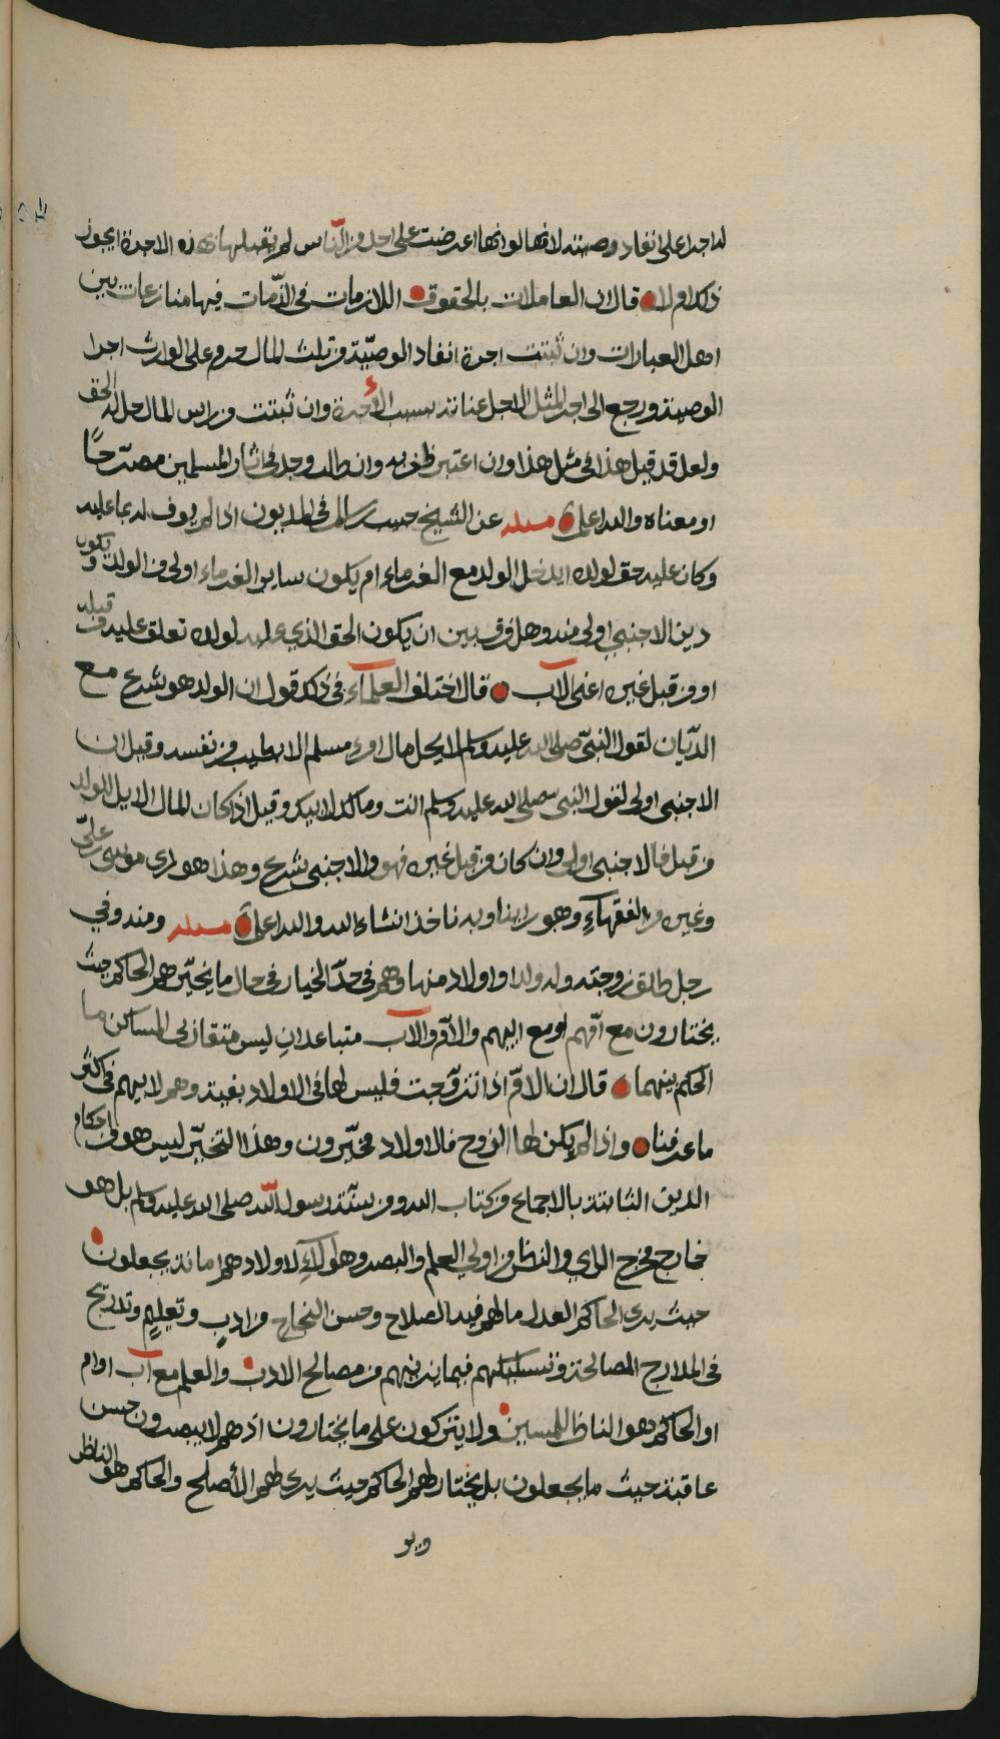 له اجرا على انفاد وصيته لانها لو انها اعرضت على احد من الناس لم يقبلها بهذه الاجرة ايجوز
ذلك ام لا قال ان العاملات بالحقوق اللازمات في الذّمات فيها منازعات بين
اهل العبارات وان ثبتت اجرة انفاد الوصيّة من ثلث المال حرم على الوارث اجرا
الوصية ورجع الى اجر المثل لاجل عنائه بسبب الأجرة وان ثبتت من راس المال حل له الحق
ولعل قد قيل هذا في مثل هذا وان اعتبر ظفر به وان طالب وجد في اثار المسلمين مصرّحًا
او معناه والله اعلم مسئلة عن الشيخ حبيب سالم في المديون اذا لم يوف له بما عليه
وكان عليه حق لولده ايدخل الولد مع الغرماء ام يكون ساير الغرماء اولى من الولد ويكون
دين الاجنبي اولى منه وهل فرق بين ان يكون الحق الذي عليه لولده تعلق عليه من قبله
او من قبل غيره اعني الآب قال اختلف العلمآء في ذلك قول ان الولد هو شرع مع
الدّيان لقول النبيّ صلى الله عليه وسلم لا يحل مال امرء مسلم الا بطيب من نفسه وقيل ان
الاجنبي اولى لقول النبي صلى الله عليه وسلم انت ومالك لابيك وقيل اذا كان المال الايل للولد
من قبل فالاجنبي اولى وان كان من قبل غيره فهو والاجنبي شرع وهذا هو لرى موسى علىّ
وغيره من الفقهآء وهو راينا وبه ناخذ انشاء الله والله اعلم مسئلة ومنه وفي
رجل طلق زوجته وله ولدا واولاد منها وهم في حدّ الخيار في حال ما يخيّرهم الحاكم حيث
يختارون مع امّهم او مع ابيهم والامّ والاب متباعدان ليس متقاربى المساكن ما
الحكم بينهما قال ان الامّ اذا تزوّجت فليس لها في الاولاد بغية وهم لابيهم في اكثر
ما عرفنا واذا لم يكن لها الزوج فالاولاد مخيّرون وهذا التخيّر ليس هو من احكام
الدين الثابتة بالاجماع من كتاب الله ومن سنّة رسول اللّه صلى الله عليه وسلم بل هو
خارج مخرج الراي والنظر من اولي العلم والبصر وهؤلآء الاولاد هم امانة يجعلون
حيث يرى الحاكم العدل ما لهم فيه الصلاح وحسن النجاح من ادبٍ وتعليمٍ وتدريج
في المدارج الصالحة وتسليكهم فيما يزينهم من مصالح الادب والعلم مع آب او ام
او الحاكم هو الناظر للمسلمين ولا يتركون على ما يختارون اذ هم لا يبصرون حسن
عاقبة حيث ما يجعلون بل يختار لهم الحاكم حيث يرى لهم الأصلح والحاكم هو الناظر